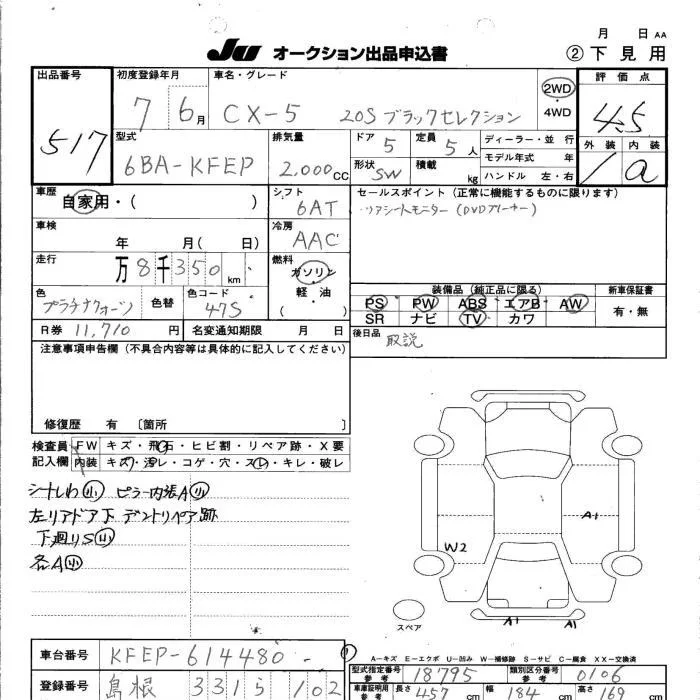 月 日 AA
JU オークション出品申込書
② 下見用
出品番号
517
初度登録年月
7 6月
車名・グレード
CX-5 20S ブラックセレクション
2WD
4WD
評価点
4.5
外装 内装
1 a
型式
6BA-KFEP
排気量
2,000cc
ドア
5
定員
5人
形状
SW
積載
kg
ディーラー・並行
モデル年式 年
ハンドル 左・右
車歴
自家用・( )
シフト
6AT
セールスポイント(正常に機能するものに限ります)
リアシートモニター(DVDプレーヤー)
車検
年 月( 日)
冷房
AAC
走行
万8千350km
燃料
ガソリン
軽・油
( )
色
プラチナクォーツ
色替
色コード
47S
装備品(純正品に限る)
PS PW ABS エアB AW
SR ナビ TV カワ
新車保証書
有・無
R券 11,710円
名変通知期限 月 日
後日品
取説
注意事項申告欄(不具合内容等は具体的に記入してください)
修復歴 有 〔箇所 〕
検査員
記入欄
FW キズ・飛石・ヒビ割・リペア跡・X要
内装 キズ・汚レ・コゲ・穴・スレ・キレ・破レ
シートしわ小 ピラー内張A小
左リアドア下 デントリペア跡
下廻りS小
各A小
W2
A1
A1 A1
スペア
A-キズ E-エクボ U-凹み W-補修跡 S-サビ C-腐食 XX-交換済
車台番号
KFEP-614480
①
型式指定番号
参考
18795
類別区分番号
参考
0106
登録番号
島根 331 ら 102
車庫証明用
参考
長さ
457cm
幅
184cm
高さ
169cm